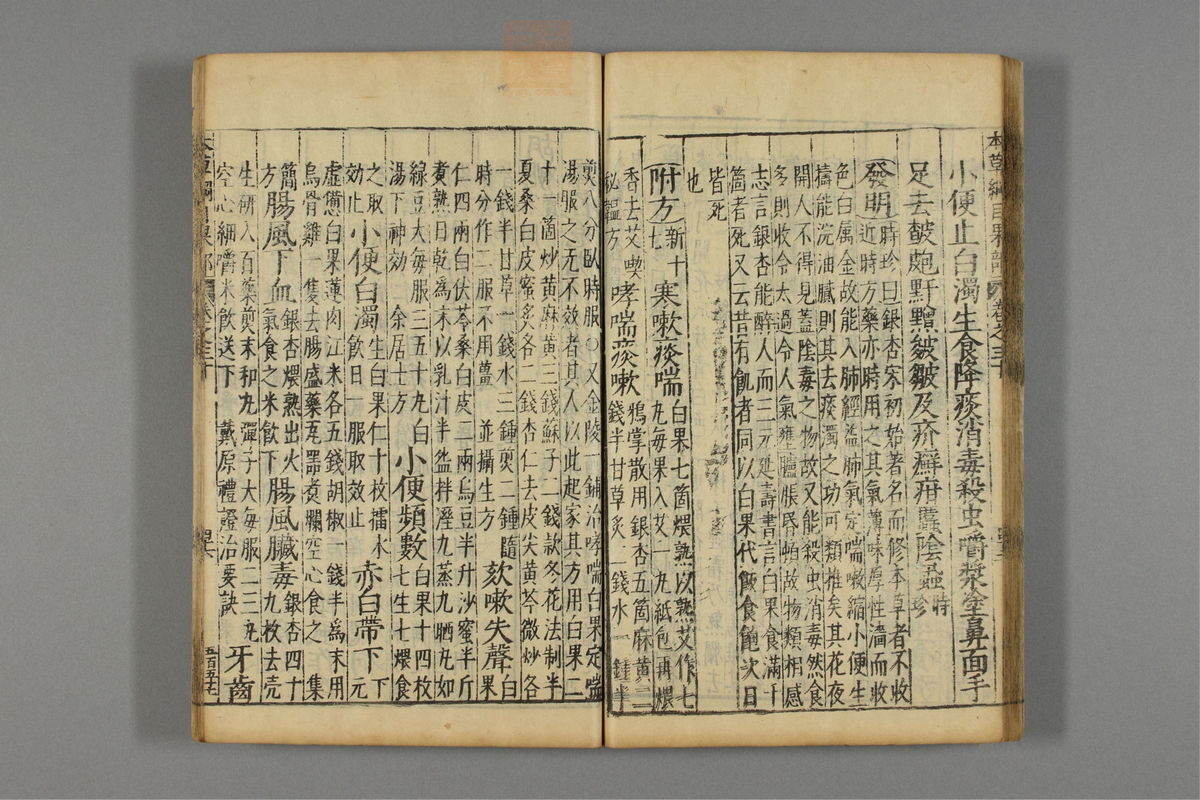 本草綱目果部 卷之三十
小便止白濁生食降痰消毒殺虫嚼漿塗鼻面手
足去皶皰䵟䵳皴皺及疥癬疳䘌陰虱時珍
發明時珍曰銀杏宋初始著名而修本草者不收近時方藥亦時用之其氣薄味厚性濇而收
色白屬金故能入肺經益肺氣定喘嗽縮小便生擣能浣油膩則其去痰濁之功可類推矣其花夜
開人不得見蓋陰毒之物故又能殺虫消毒然食多則收令太過令人氣壅臚脹昏頓故物類相感
志言銀杏能醉人而三元延壽書言白果食滿千箇者死又云昔有飢者同以白果代飯食飽次日
皆死也
附方新十七 寒嗽痰喘白果七箇煨熟以熟艾作七丸每果入艾一丸紙包再煨
香去艾喫秘韞方 哮喘痰嗽鴨掌散用銀杏五箇麻黄二錢半甘草炙二錢水一鍾半
煎八分臥時服○又金陵一鋪治哮喘白果定喘湯服之无不效者其人以此起家其方用白果二
十一箇炒黄麻黄三錢蘇子二錢款冬花法制半夏桑白皮蜜炙各二錢杏仁去皮尖黄芩微炒各
一錢半甘草一錢水三鍾煎二鍾隨時分作二服不用薑 並攝生方 欬嗽失聲白果
仁四兩白伏苓桑白皮二兩烏豆半升沙蜜半斤煮熟日乾為末以乳汁半盌拌溼九蒸九晒丸如
綠豆大每服三五十丸白湯下神効 余居士方 小便頻數白果十四枚七生七煨食
之取效止 小便白濁生白果仁十枚擂水飲日一服取效止 赤白帶下下元
虛憊白果蓮肉江米各五錢胡椒一錢半為末用烏骨雞一隻去腸盛藥瓦噐煮爛空心食之 集
簡方 腸風下血銀杏煨熟出火氣食之米飲下 腸風臟毒銀杏四十九枚去壳
生研入百藥煎末和丸彈子大每服二三丸空心細嚼米飲送下 戴原禮證治要訣 牙齒
本草綱目果部 卷之三十